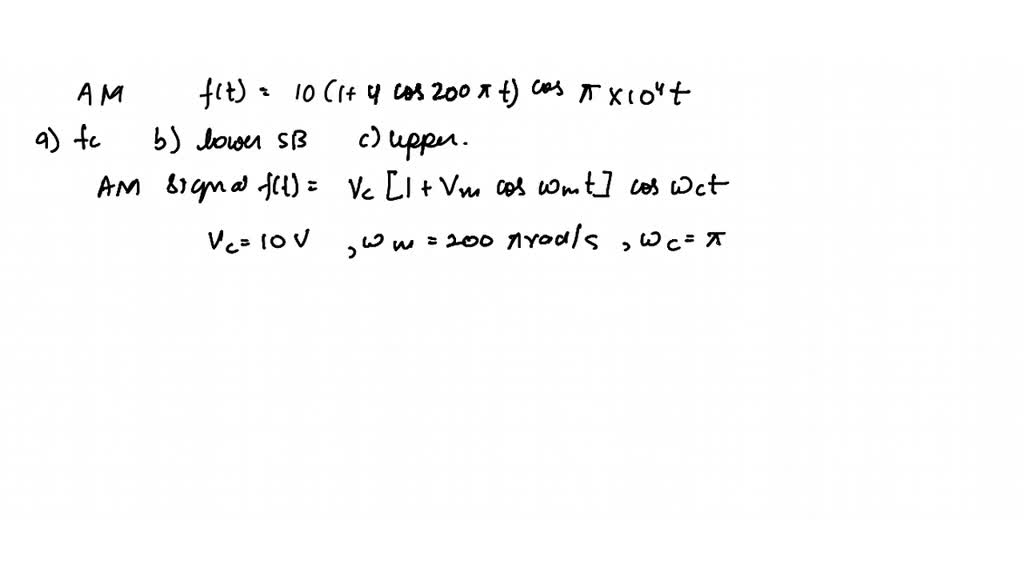 AM f(t) = 10 (1+ 4 cos 200 π t) cos π × 10⁴ t
a) fc b) lower SB c) upper.
AM Signal f(t) = Vc [1 + Vm cos ωm t] cos ωc t
Vc = 10 V , ωm = 200 π rad/s , ωc = π